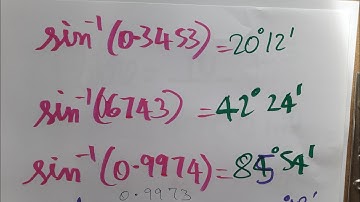 sin⁻¹(0.3453)=20°12'
sin⁻¹(.6743)=42°24'
sin⁻¹(0.9974)=85°54'
0.9973